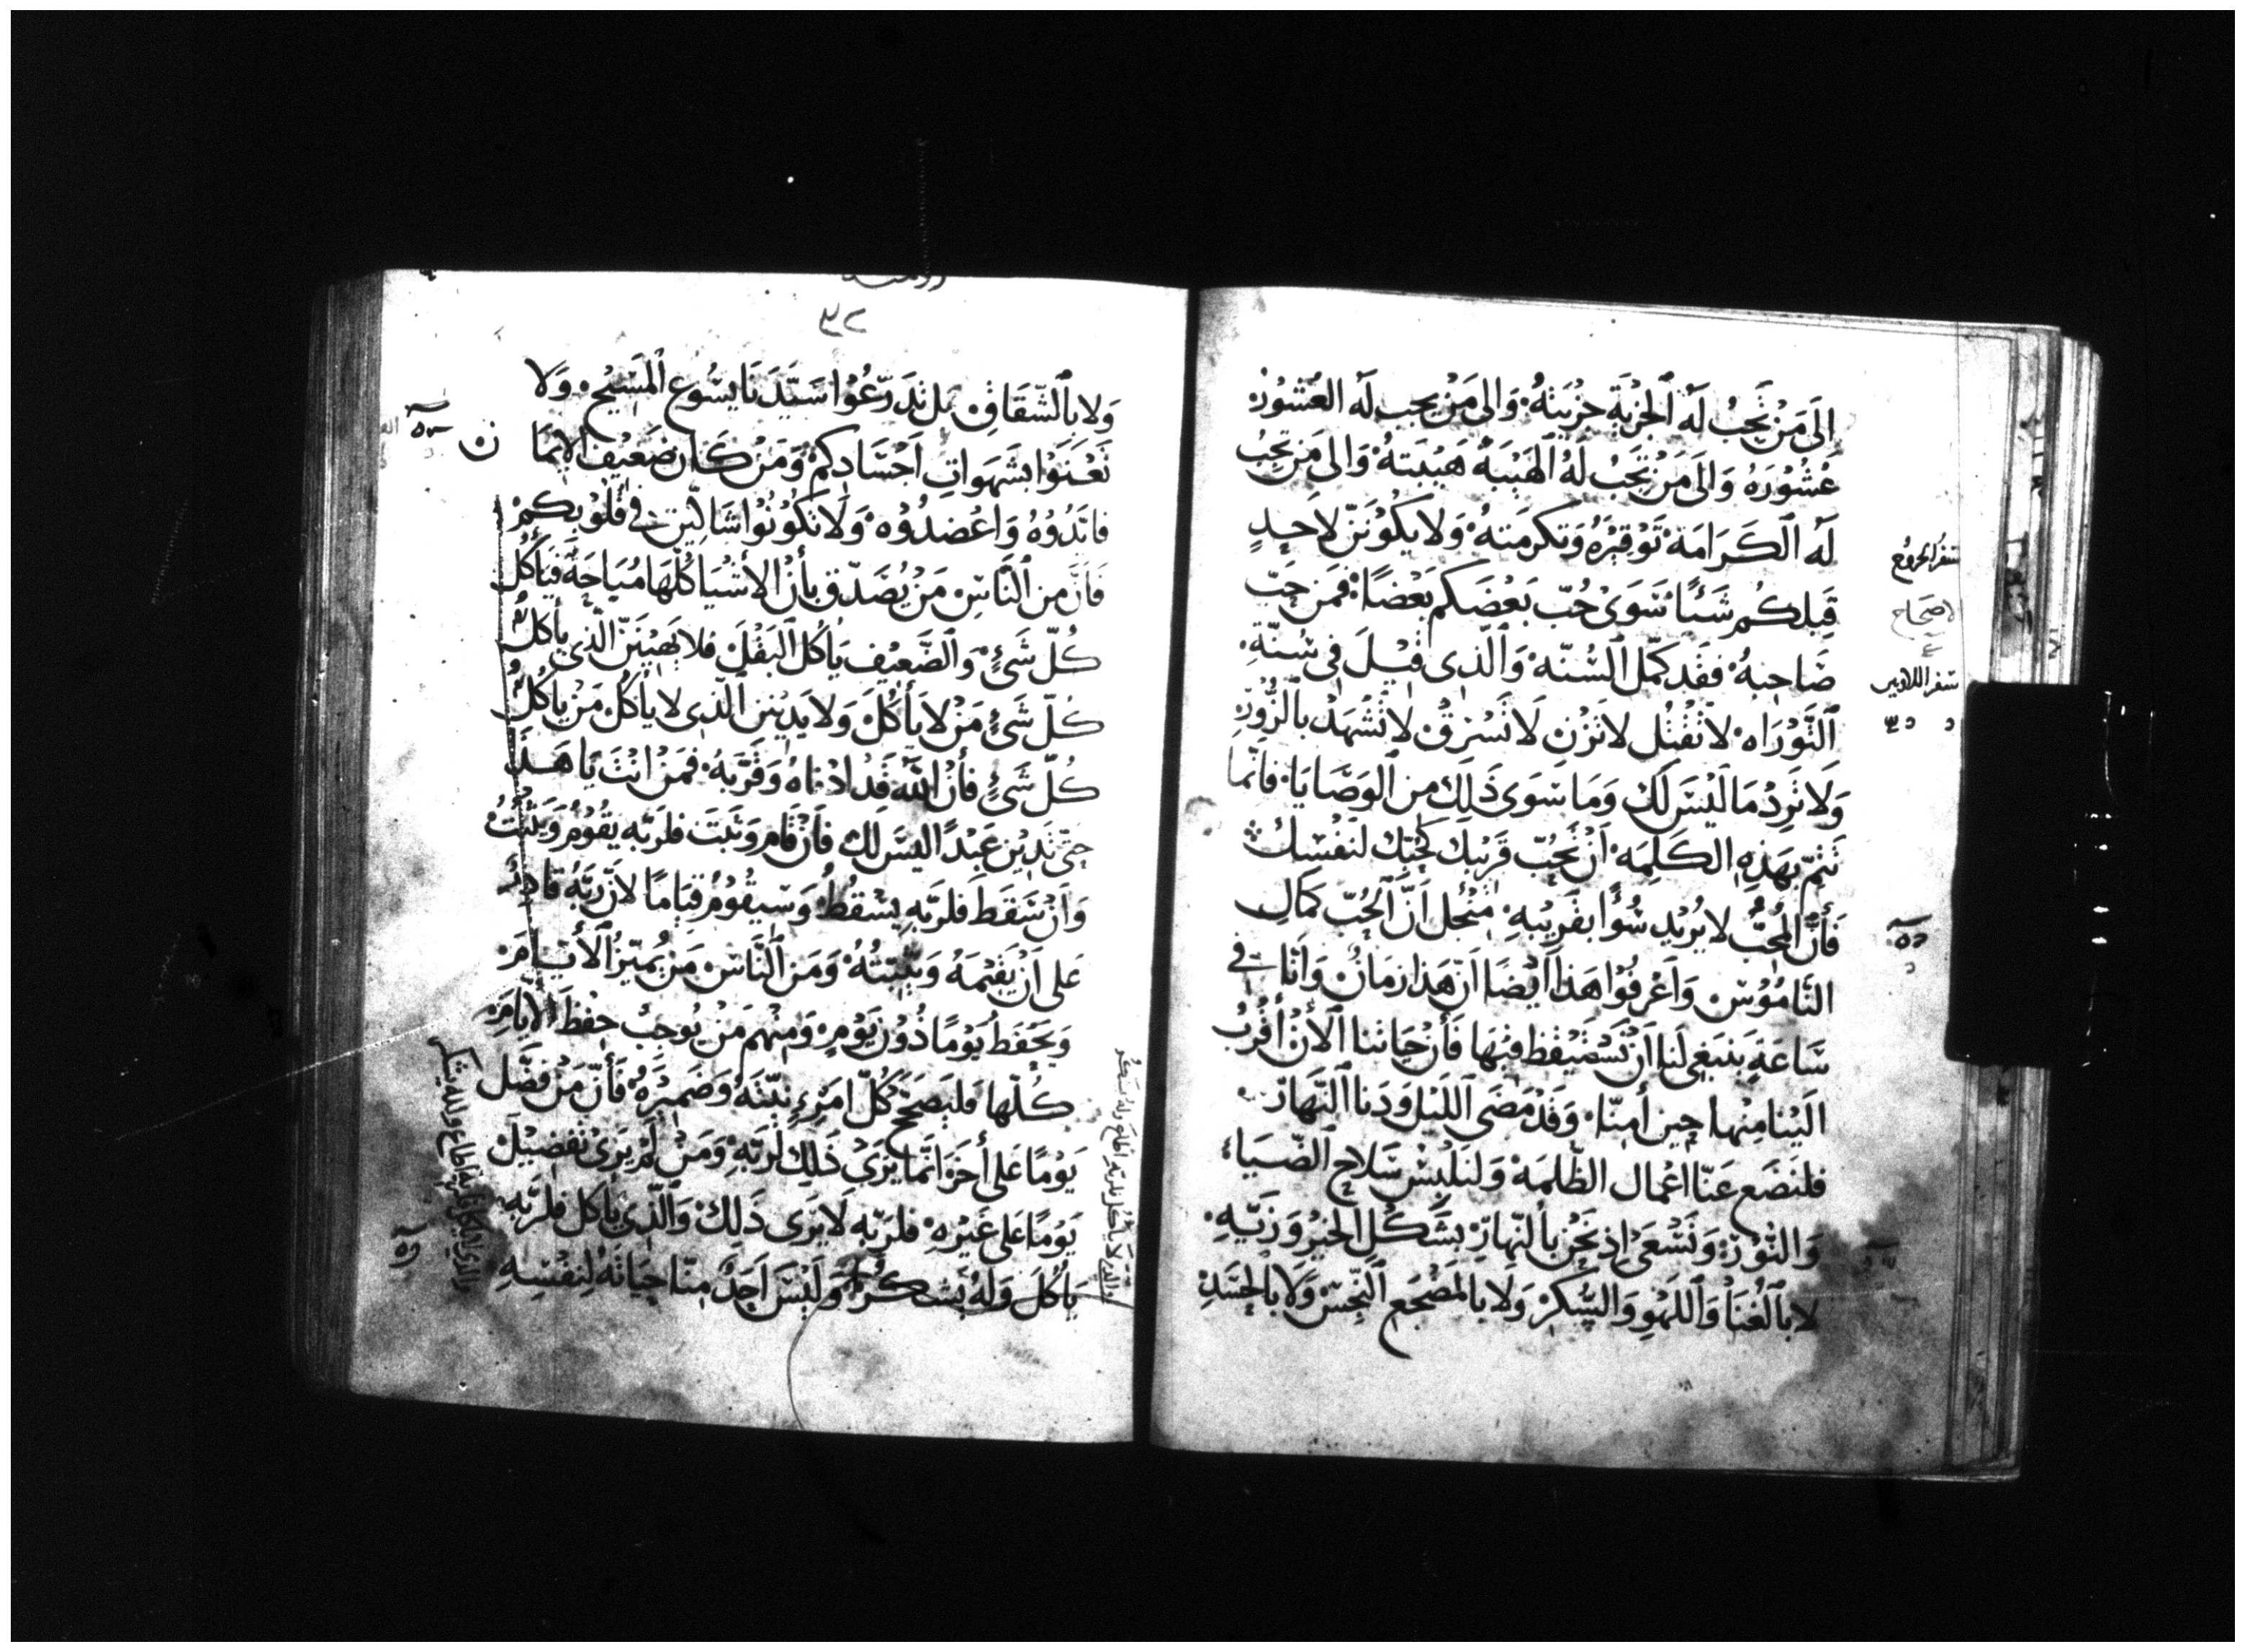 الَى مَنْ تَجِبُ لَهُ ٱلجِزْيَة جِزْيَتهُ وَالى مَنْ يجب لَه العُشُورْ
عُشُورَهُ وَالَى مَنْ تَجَبُ لَهُ ٱلهَيْبَةُ هَيْبَتهُ وَالى مَن تجِبُ
لَه ٱلكَرَامَة تَوْقِيْرُه وَتكرمَتهُ وَلا يَكُوْنَنّ لاَحِدٍ
قِبلكُم شَئًا سَوَىْ حُبّ بَعْضَكم بَعْضًا فمَن حَبّ
صَاحِبهُ فقَد كمّل ٱلسُنّه وَٱلّذى قيْلَ فى سُنّةِ
ٱلتَّوْرَاه لا تَقْتُل لا تَزْنِ لا تَسْرقْ لا تَشْهَدْ بٱلزُّوْرِ
وَلا تَرِدْ مَا لَيْسَ لَك وَمَا سوَى ذَلِكَ مِن ٱلوَصَايَا فانّما
تَتِمّ بهَذِهِ الكَلِمَه أنْ تَحِبّ قَرْيبك كَحُبّك لنَفْسِكْ
فَأنّ ٱلمُحِبّ لا يُرْيد سُؤًا بقَرِيْبهِ مِنْ اجل انَّ ٱلحُبّ كمَال
النَّامُوْسْ وَاعْرفُوا هَذا ايْضًا انّ هَذا زمَانْ وَانّا في
سَاعَةٍ يَنبَغِى لنَا انْ نَسْتَيْقظ فيهَا فَأنْ حَيَاتنا ٱلأنْ أقْرَبُ
الَيْنا مِنْها حِين أمنّا وَقَدْ مَضَى ٱللَيْل وَدَنا ٱلنَّهَارْ
فلنَضَع عَنّا اعْمال الظّلمَة وَلنَلْبسْ سَلاح ٱلضّيَاء
وَالنُّوْرْ وَنَسْعَى اذ نَحْنْ بٱلنّهارِ بشَكْل ٱلخيْر وَزيّهِ
لا بٱلغِنَا وَٱللَهْوِ وَالسُّكرْ وَلا بالمَضْجَع ٱلنّجسْ وَلا بالحَسَدِ
سفر الخروج
اصحاح
سفر اللاويين
٣٢
وَلا بٱلشّقَاقِ بل تدَرّعُوا سَيّدَنا يسُوع ٱلمَسِيْح وَلا
تَعْنَوْا بشَهَواتِ اَجْسَادِكمْ وَمَنْ كَان ضَعِيْف الايمَا ن
فايّدُوْهُ وَاعْضدُوْه وَلا تَكُوْنُوْا شَاكّين في قُلُوْبكمْ
فَأنّ مِن ٱلنّاسْ مَنْ يُصَدّق بأنْ الأشْيا كُلّهَا مُبَاحَة فَيَأكُل
كُلّ شَئٍ وَٱلضّعِيْف يَأكُل ٱلبَقْلَ فلا يَهيْنَنّ الّذِي يأكلُ
كُلّ شَئٍ مَنْ لا يَأكُلْ وَلا يَدِيْنن ٱلّذى لا يأكُلْ مَنْ يأكُلُ
كُلّ شَئٍ فأنْ اللّهَ قَدْ ادْناهُ وَقرّبَهُ فمَنْ انْتَ يَا هَذا
حِتّى تَدِيْن عَبْدًا ليسَ لك فَأنْ قَام وَثَبتَ فلرَبّهِ يقُوْمُ وَيَثْبُتُ
وَانْ سَقَط فَلرَبّهِ يسْقطُ وَسَيقُوْمُ قيَامًا لأنّ رَبّهُ قادِرٌ
عَلى انْ يُقيْمَهُ وَيُثَبّتهُ وَمَن ٱلنّاسْ مَنْ يُميّزُ ٱلأيّامَ
وَيَحْفَظُ يَوْمًا دُوْنَ يَوْمٍ وَمِنْهُم مَنْ يُوجبُ حِفْظَ الايّامِ
كُلّها فليَصَحّ كُلّ امْرءٍ نيّتَهُ وَضَميْرَهُ فَأنّ مَنْ فضّل
يَوْمًا عَلى أخَرَ انّما يَرَىْ ذَلِك لرَبّهِ وَمَنْ لَمْ يَرَىْ تَفضِيْلَ
يَوْمًا عَلى غَيْرهِ فلرَبّهِ لا يَرَى ذَلِكَ وَٱلّذِى يأكل فلرَبّهِ
يأكُلَ وَلهُ يَشكُرْ وَليْسَ اَحَدٌ مِنّا حَيَاتَهُ لنَفْسِهِ